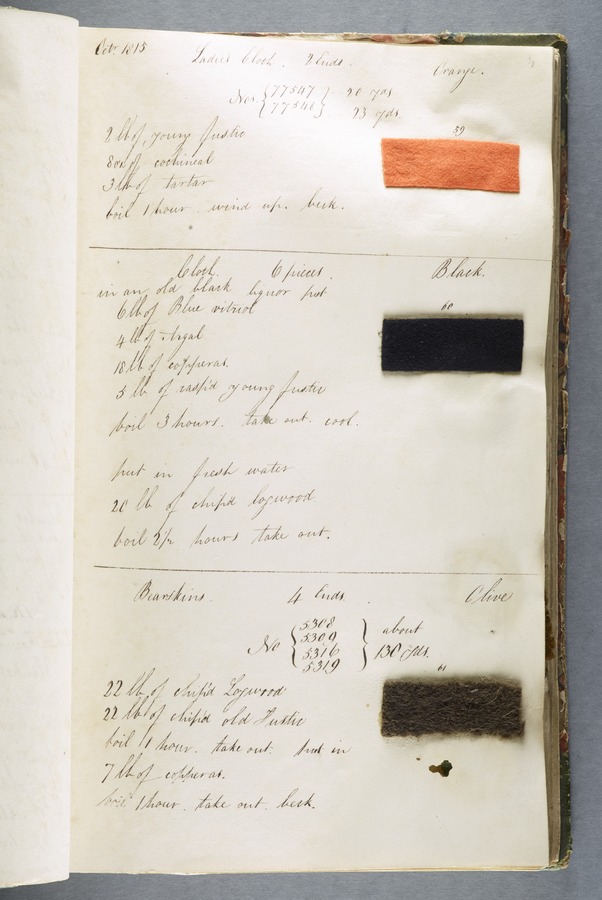 Octr. 1815
Ladies Cloth. 2 Ends. Orange.
Nos. {77547} 20 yds
{77548} 23 yds.
59
2 lb of young fustic
8 oz of cochineal
3 lb of tartar
boil 1 hour. wind up. beck.
Cloth. 6 pieces. Black.
in an old black liquor put
6 lb of Blue vitriol
60
4 lb of Argal
18 lb of copperas.
5 lb of rasp'd young fustic
boil 3 hours. take out. cool.
put in fresh water
20 lb of chip'd logwood
boil 2 1/2 hours take out.
Bearskins. 4 Ends. Olive
No {5308
5309
5316
5319} about
130 yds.
61
22 lb of chip'd Logwood
22 lb of chip'd old Fustic
boil 1 hour. take out. put in
7 lb of copperas.
boil 1 hour. take out. beck.